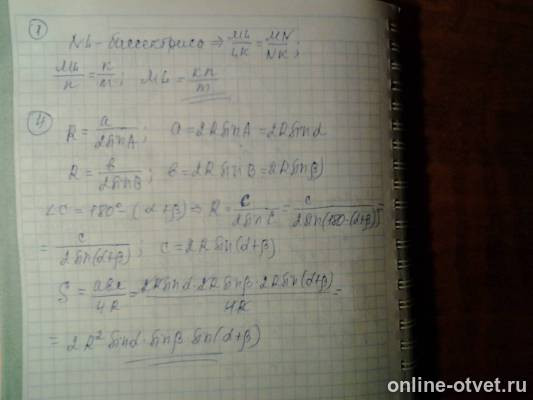 1
NL - биссектриса ⇒ ML/LK = MN/NK;
ML/n = k/m; ML = kn/m
4
R = a/2sinA; a = 2R sinA = 2R sinα
R = b/2sinB; b = 2R sinB = 2R sinβ
∠C = 180° - (α+β) ⇒ R = c/2sinC = c/2sin(180-(α+β)) =
= c/2sin(α+β); c = 2R sin(α+β)
S = abc/4R = 2R sinα · 2R sinβ · 2R sin(α+β)/4R =
= 2R² sinα · sinβ sin(α+β)
online-otvet.ru